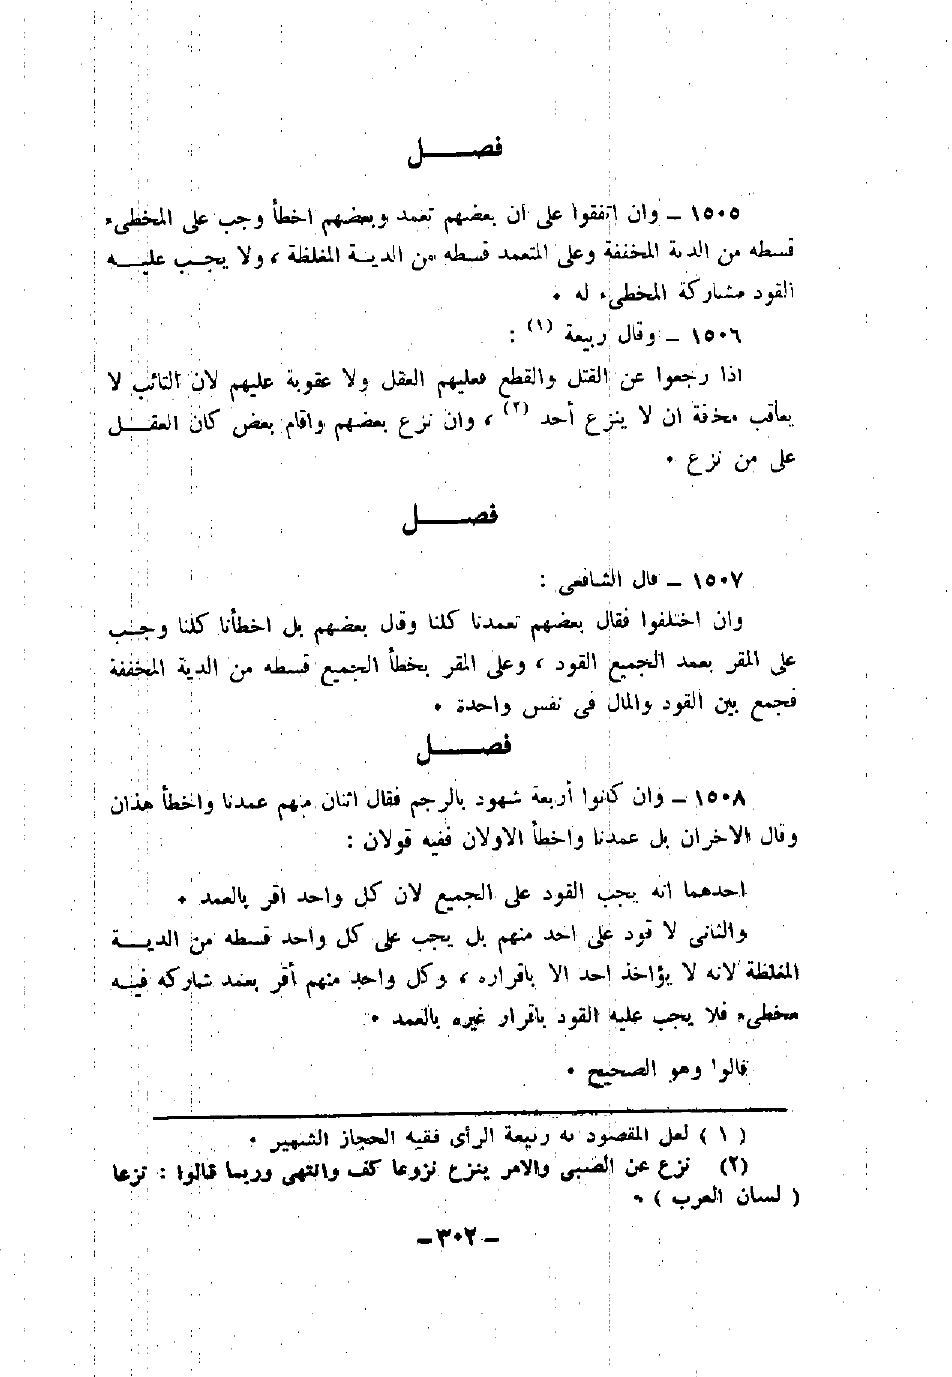 فصـــــل
١٥٠٥ ــ وان اتفقوا على ان بعضهم تعمد وبعضهم اخطأ وجب على المخطىء
قسطه من الدية المخففة وعلى المتعمد قسطه من الديـــة المغلظة ، ولا يجـــب عليـــه
القود مشاركة المخطىء له ٠
١٥٠٦ ــ وقال ربيعة (١) :
اذا رجعوا عن القتل والقطع فعليهم العقل ولا عقوبة عليهم لان التائب لا
يعاقب مخافة ان لا ينزع أحد (٢) ، وان نزع بعضهم واقام بعض كان العقـــل
على من نزع ٠
فصـــــل
١٥٠٧ ــ قال الشافعى :
وان اختلفوا فقال بعضهم تعمدنا كلنا وقال بعضهم بل اخطأنا كلنا وجـــب
على المقر بعمد الجميع القود ، وعلى المقر بخطأ الجميع قسطه من الدية المخففة
فجمع بين القود والمال فى نفس واحدة ٠
فصـــــل
١٥٠٨ ــ وان كانوا أربعة شهود بالرجم فقال اثنان منهم عمدنا واخطأ هذان
وقال الاخران بل عمدنا واخطأ الاولان ففيه قولان :
احدهما انه يجب القود على الجميع لان كل واحد اقر بالعمد ٠
والثانى لا قود على احد منهم بل يجب على كل واحد قسطه من الديـــة
المغلظة لانه لا يؤاخذ احد الا باقراره ، وكل واحد منهم أقر بعمد شاركه فيـــه
مخطىء فلا يجب عليه القود باقرار غيره بالعمد ٠
قالوا وهو الصحيح ٠
( ١ ) لعل المقصود به ربيعة الرأى فقيه الحجاز الشهير ٠
(٢) نزع عن الصبى والامر ينزع نزوعا كف وانتهى وربما قالوا : نزعا
( لسان العرب ) ٠
ــ ٣٠٢ ــ